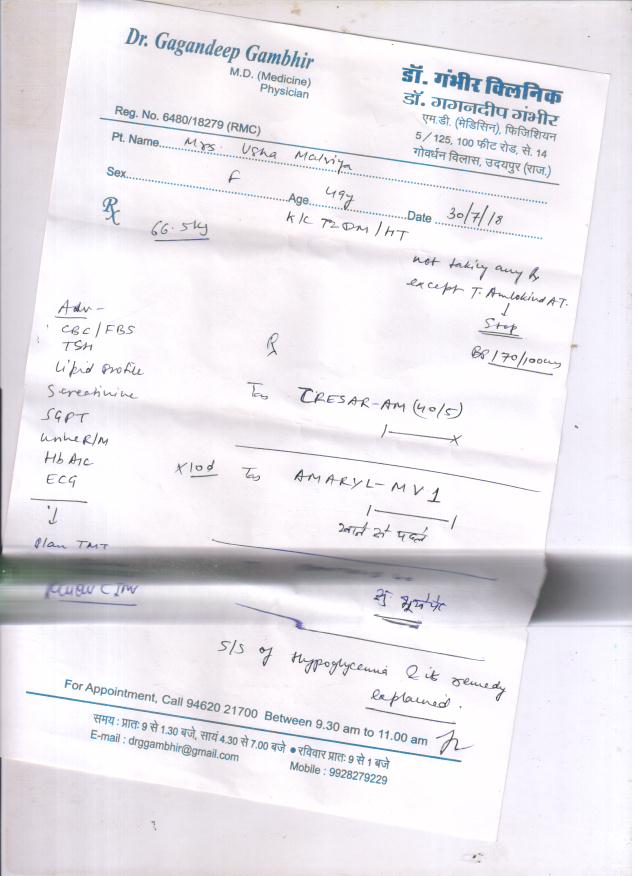 Dr. Gagandeep Gambhir
M.D. (Medicine)
Physician
डॉ. गंभीर क्लिनिक
डॉ. गगनदीप गंभीर
एम.डी. (मेडिसिन), फिजिशियन
5/125, 100 फीट रोड, से. 14
गोवर्धन विलास, उदयपुर (राज.)
Reg. No. 6480/18279 (RMC)
Pt. Name Mrs. Usha Malviya
Sex F Age 49y Date 30/7/18
66.5kg
K/C T2DM/HT
not taking any Rx
except T. Amlokind AT.
↓
Stop
BP 170/100
Adv -
CBC/FBS
TSH
Lipid Profile
S creatinine
SGPT
Urine R/M
HbA1C
ECG
↓
Plan TMT
Review C
Rx
Tab CRESAR-AM (40/5)
|——x
x10d Tab AMARYL-MV1
|——|
खाने से पहले
S/S of Hypoglycemia & its remedy
explained.
For Appointment, Call 94620 21700 Between 9.30 am to 11.00 am
समय : प्रातः 9 से 1.30 बजे, सायं 4.30 से 7.00 बजे ● रविवार प्रातः 9 से 1 बजे
E-mail : drggambhir@gmail.com Mobile : 9928279229